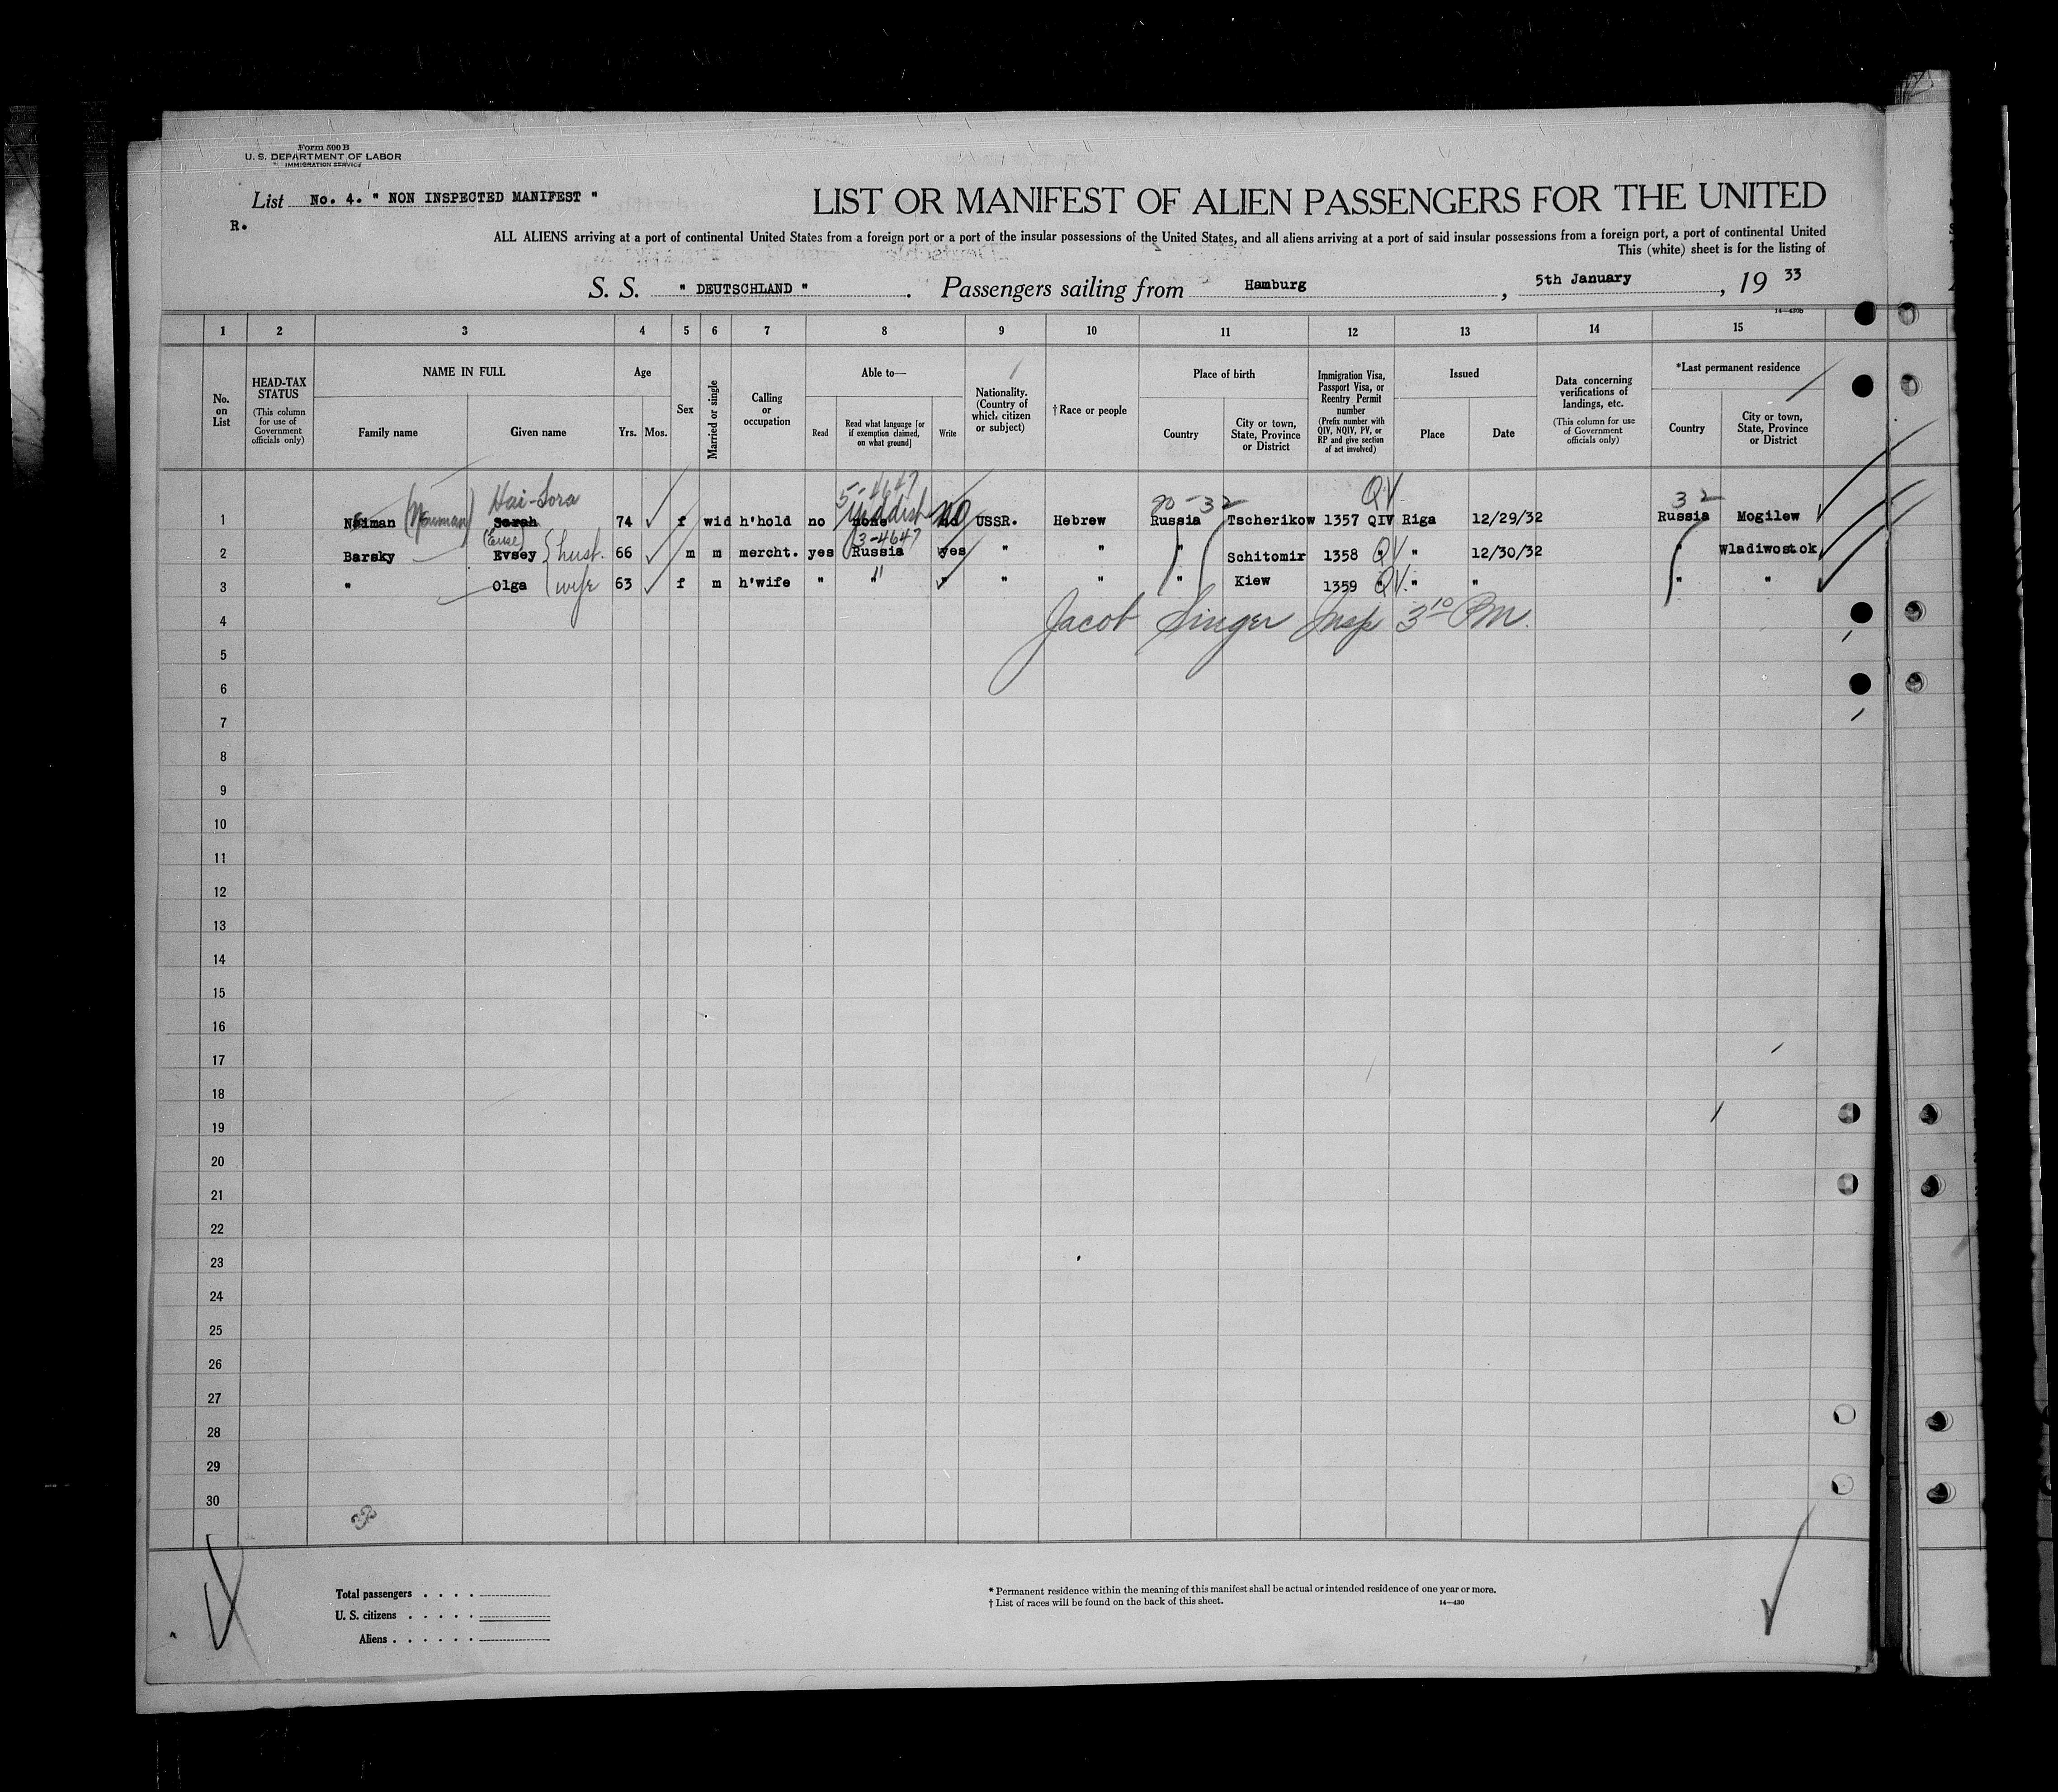 Form 500 B
U. S. DEPARTMENT OF LABOR
IMMIGRATION SERVICE
List No. 4. " NON INSPECTED MANIFEST "
R.
LIST OR MANIFEST OF ALIEN PASSENGERS FOR THE UNITED
ALL ALIENS arriving at a port of continental United States from a foreign port or a port of the insular possessions of the United States, and all aliens arriving at a port of said insular possessions from a foreign port, a port of continental United
This (white) sheet is for the listing of
S. S. " DEUTSCHLAND " . Passengers sailing from Hamburg , 5th January , 19 33
14—430b
1 2 3 4 5 6 7 8 9 10 11 12 13 14 15
No. on List
HEAD-TAX STATUS
(This column for use of Government officials only)
NAME IN FULL
Family name
Given name
Age
Yrs.
Mos.
Sex
Married or single
Calling or occupation
Able to—
Read
Read what language [or if exemption claimed, on what ground]
Write
Nationality. (Country of which citizen or subject)
†Race or people
Place of birth
Country
City or town, State, Province or District
Immigration Visa, Passport Visa, or Reentry Permit number
(Prefix number with QIV, NQIV, PV, or RP and give section of act involved)
Issued
Place
Date
Data concerning verifications of landings, etc.
(This column for use of Government officials only)
*Last permanent residence
Country
City or town, State, Province or District
Hai-Sora 5-4647 90-32 QV 32
1 Naiman (Neuman) Sarah 74 f wid h'hold no none Yiddish no NO USSR. Hebrew Russia Tscherikow 1357 QIV Riga 12/29/32 Russia Mogilew
3-4647
2 Barsky Evsey husb. 66 m m mercht. yes Russia yes " " " Schitomir 1358 " QV " 12/30/32 " Wladiwostok
3 " Olga wife 63 f m h'wife " " " " " " Kiew 1359 " QV. " " " "
4 Jacob Singer Insp 3 10 PM.
5
6
7
8
9
10
11
12
13
14
15
16
17
18
19
20
21
22
23
24
25
26
27
28
29
30
Total passengers . . . .
U. S. citizens . . . . .
Aliens . . . . . .
* Permanent residence within the meaning of this manifest shall be actual or intended residence of one year or more.
† List of races will be found on the back of this sheet.
14—430